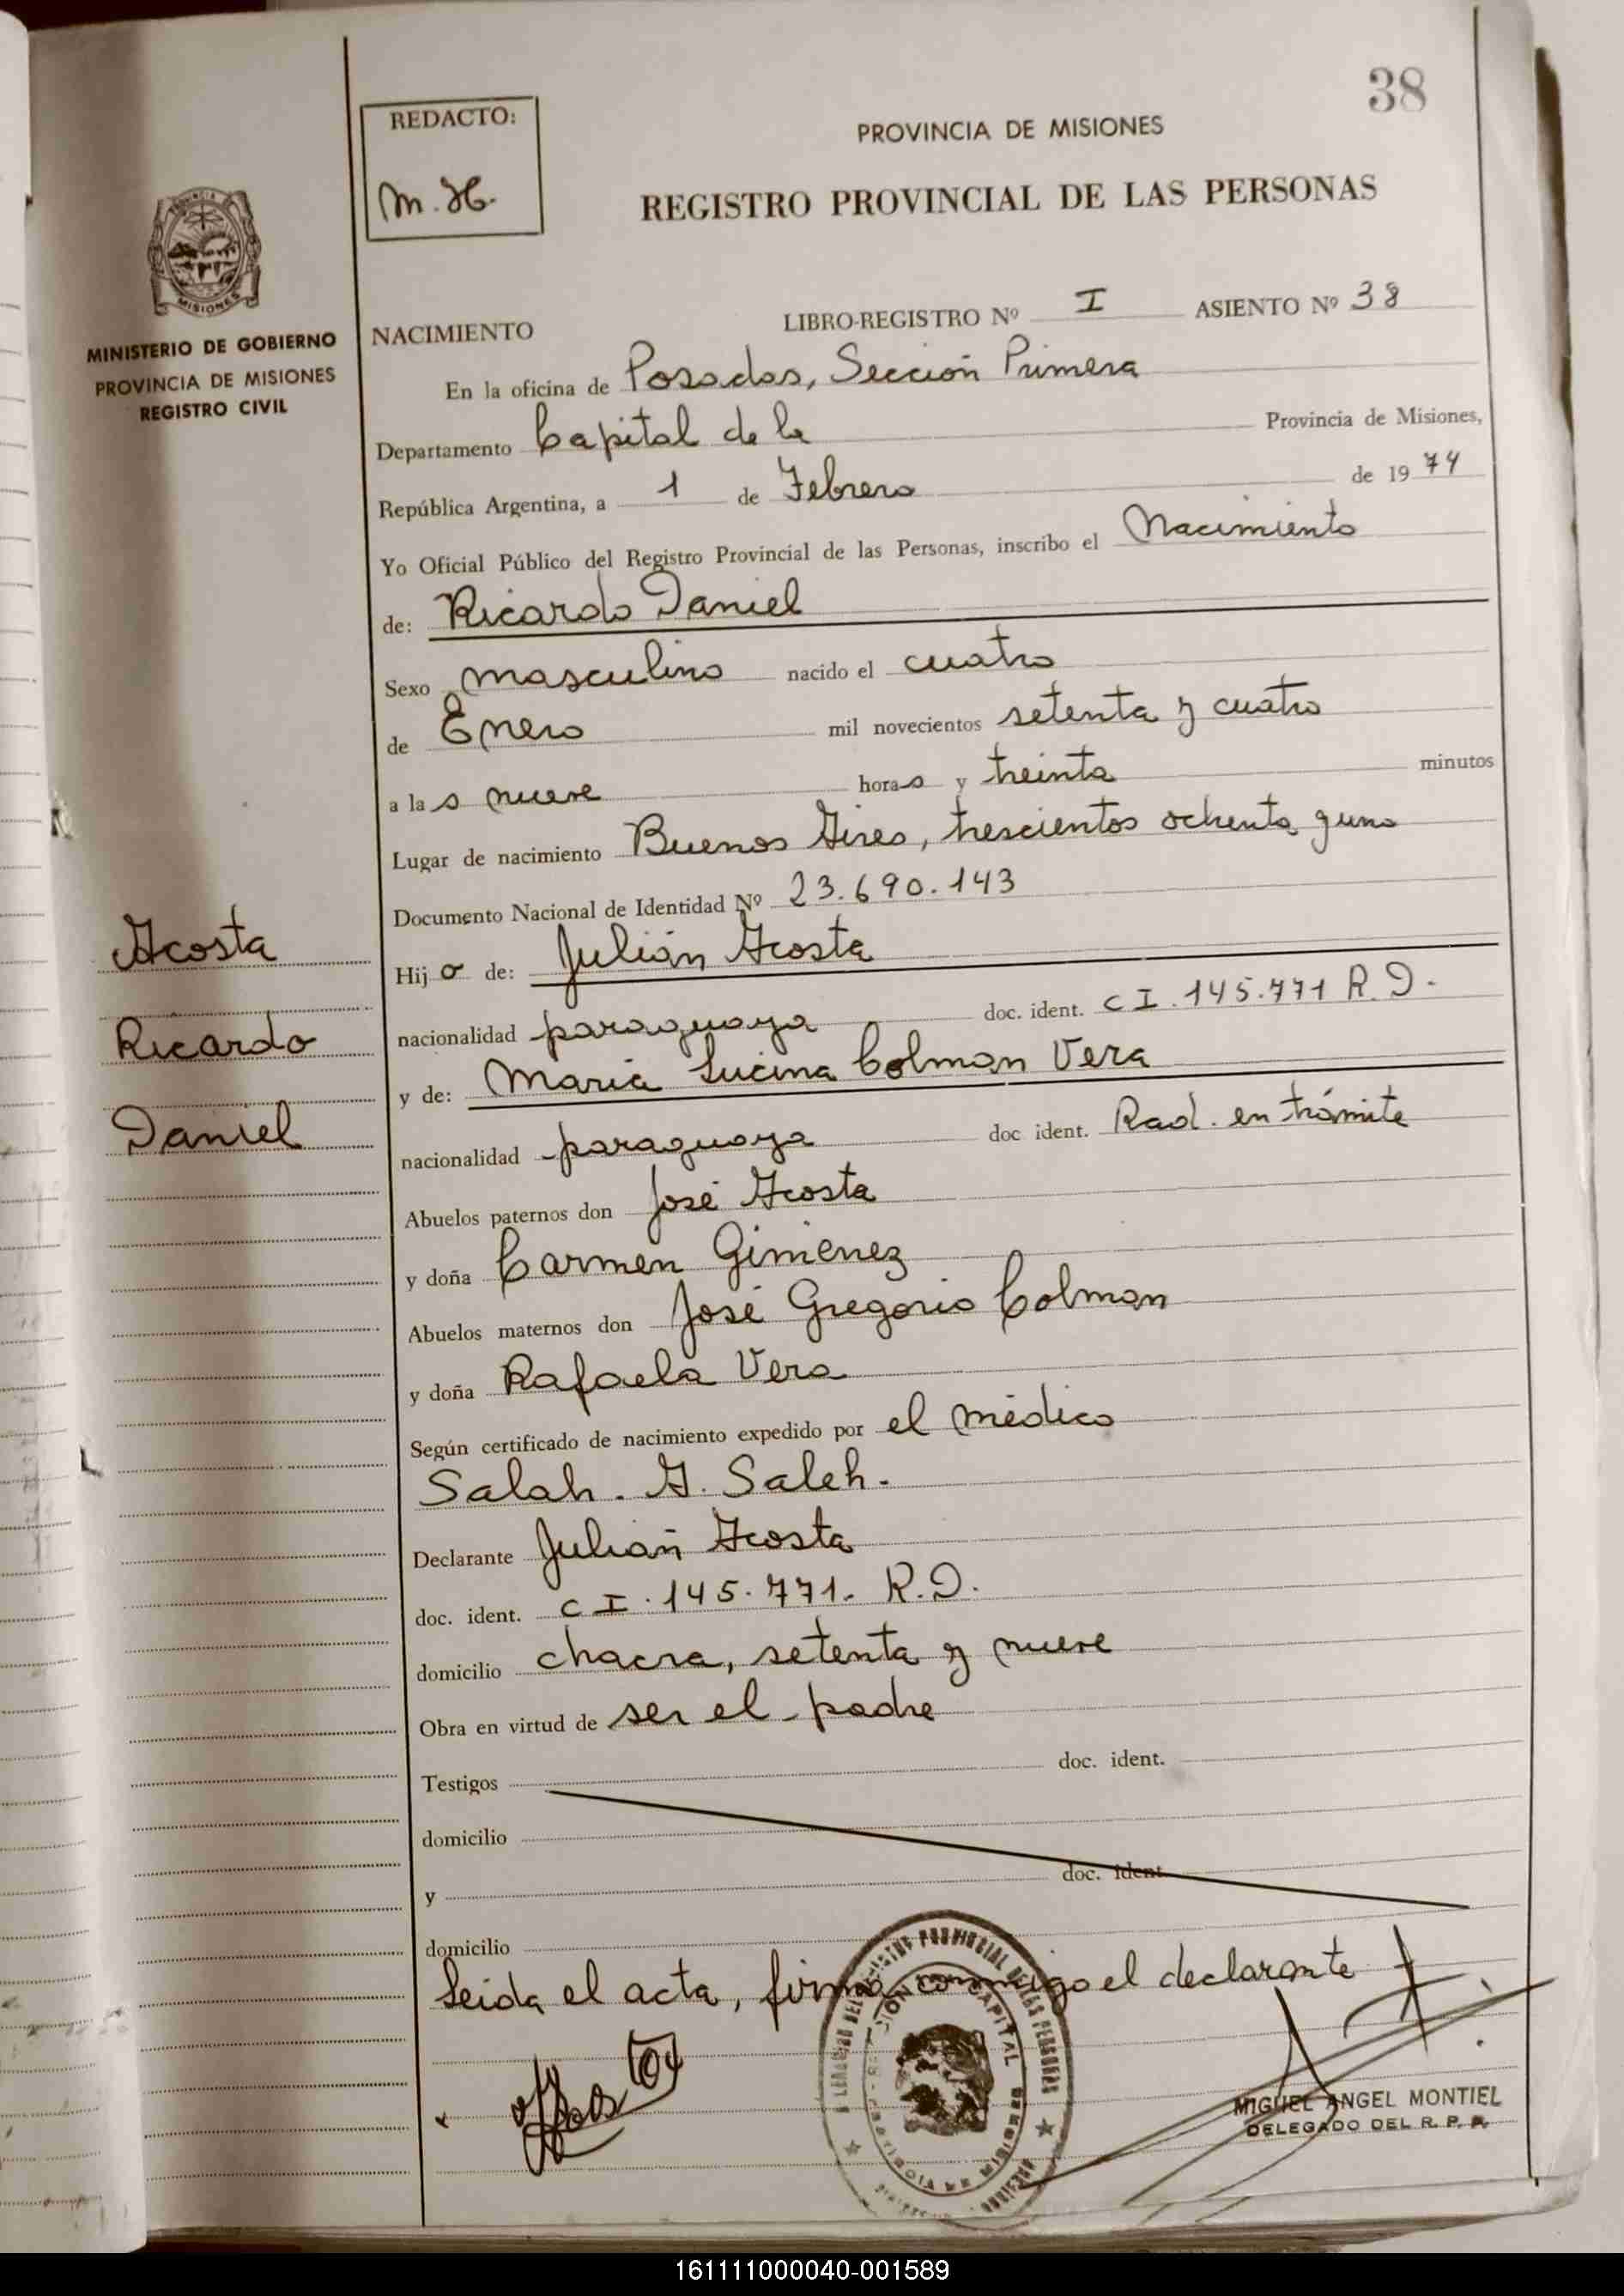 38
REDACTO:
M. H.
PROVINCIA DE MISIONES
REGISTRO PROVINCIAL DE LAS PERSONAS
MISIONES
MINISTERIO DE GOBIERNO
PROVINCIA DE MISIONES
REGISTRO CIVIL
NACIMIENTO LIBRO-REGISTRO Nº I ASIENTO Nº 38
En la oficina de Posadas, Sección Primera
Departamento Capital de la Provincia de Misiones,
República Argentina, a 1 de Febrero de 1974
Yo Oficial Público del Registro Provincial de las Personas, inscribo el Nacimiento
de: Ricardo Daniel
Sexo masculino nacido el cuatro
de Enero mil novecientos setenta y cuatro
a las nueve horas y treinta minutos
Lugar de nacimiento Buenos Aires, trescientos ochenta y uno
Documento Nacional de Identidad Nº 23.690.143
Hijo de: Julián Acosta
nacionalidad paraguaya doc. ident. C I. 145.771 R. D.
y de: María Lucina Colman Vera
nacionalidad paraguaya doc ident. Rad. en trámite
Abuelos paternos don José Acosta
y doña Carmen Giménez
Abuelos maternos don José Gregorio Colman
y doña Rafaela Vera
Según certificado de nacimiento expedido por el médico
Salah. A. Saleh.
Declarante Julián Acosta
doc. ident. C I. 145.771. R.D.
domicilio chacra, setenta y nueve
Obra en virtud de ser el padre
Testigos doc. ident.
domicilio
y doc. ident
domicilio
Leida el acta, firma conmigo el declarante
Acosta
Ricardo
Daniel
MIGUEL ANGEL MONTIEL
DELEGADO DEL R. P. P.
161111000040-001589